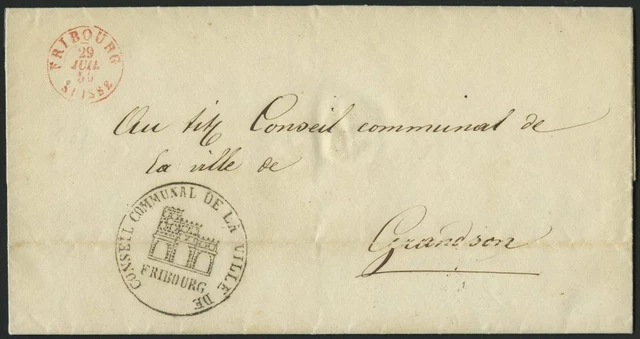 FRIBOURG
29
JUIL
56
SUISSE
Au tit. Conseil communal de
la ville de
Grandson
CONSEIL COMMUNAL DE LA VILLE DE
FRIBOURG